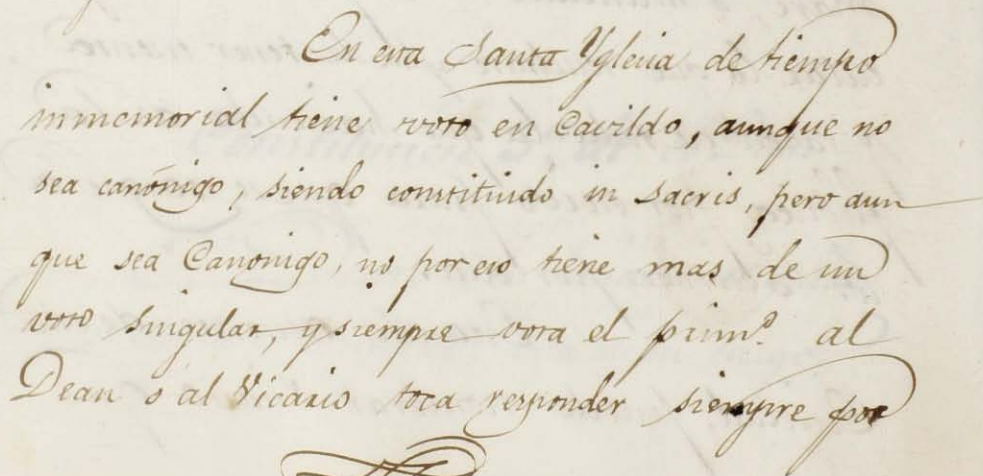 En esta Santa Yglesia de tiempo
inmemorial tiene voto en Cavildo, aunque no
sea canónigo, siendo constituido in sacris, pero aun
que sea Canonigo, no por eso tiene mas de un
voto singular, y siempre vota el prim.º al
Dean o al Vicario toca responder siempre por